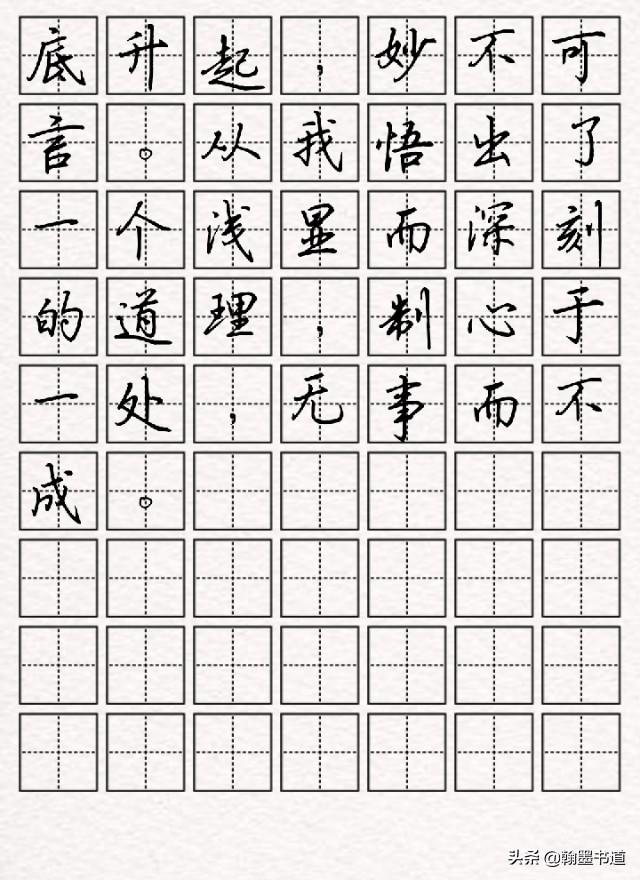 底升起，妙不可
言。从我悟出了
一个浅显而深刻
的道理，制心于
一处，无事而不
成。
头条 @翰墨书道